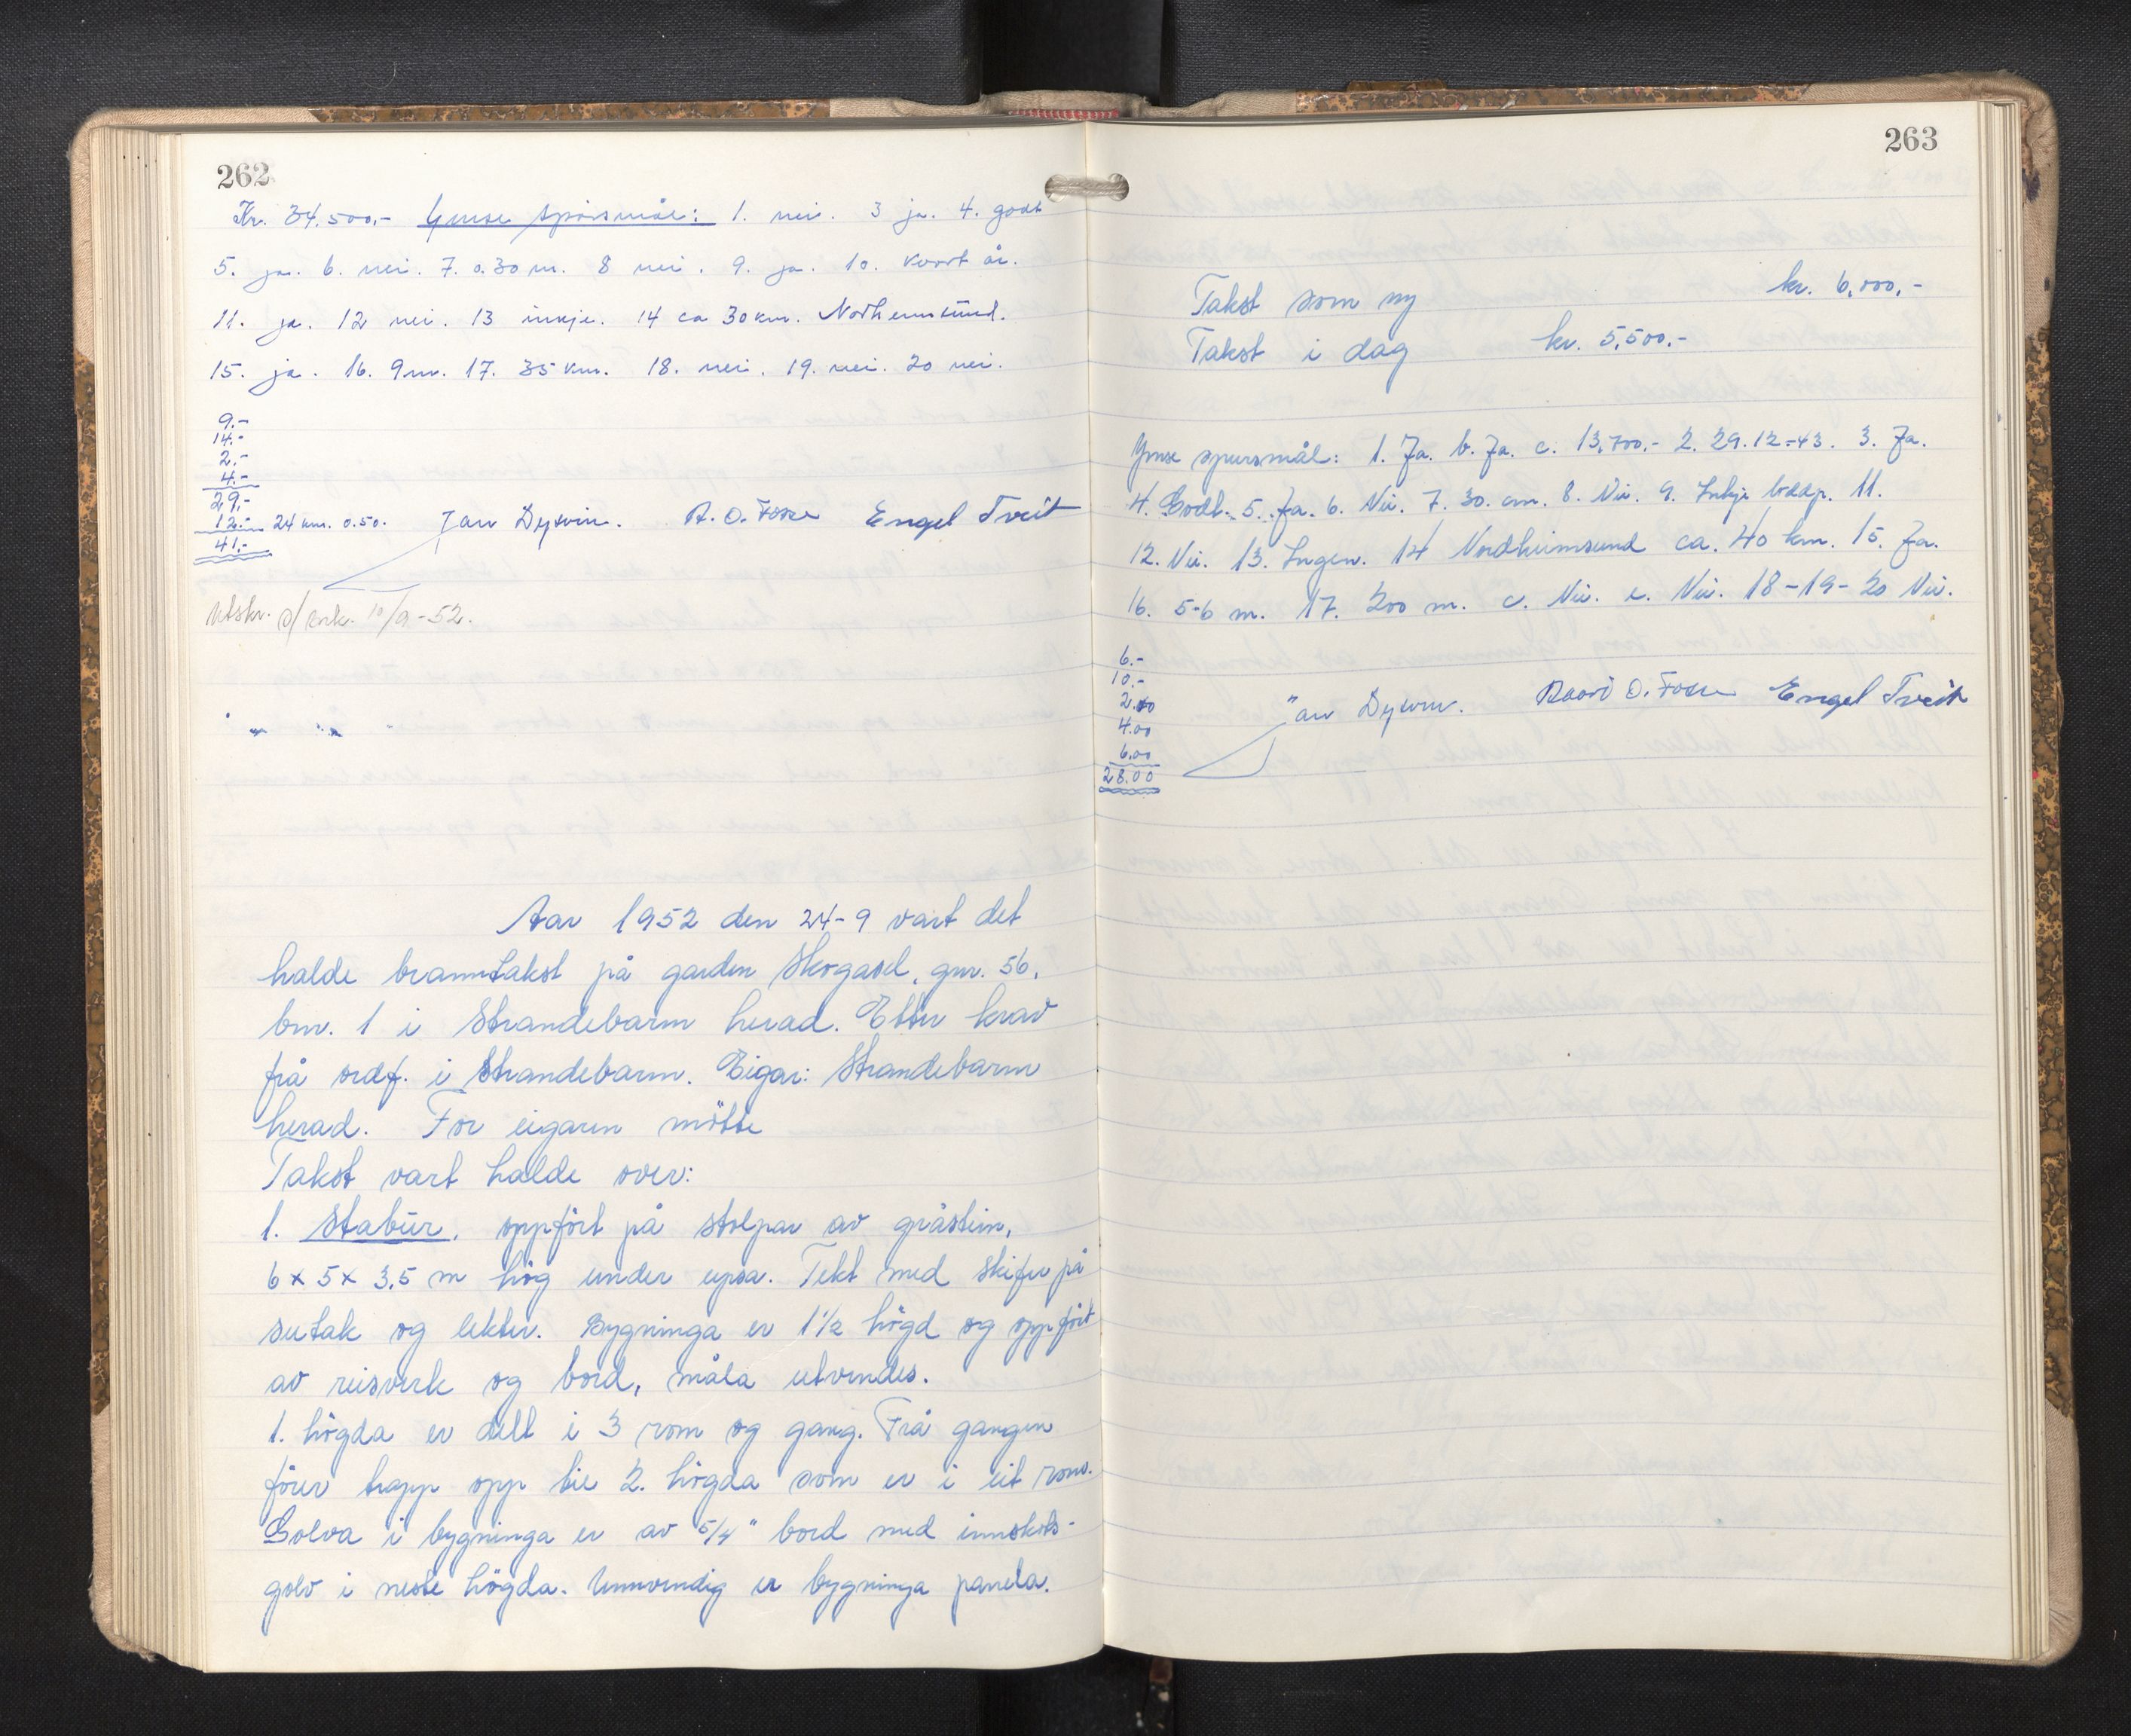 262
Kr. 34.500,- Ymse spörsmål: 1. nei. 3 ja. 4. godt
5. ja. 6. nei. 7. 0.30 m. 8 nei. 9. ja. 10. kvart år.
11. ja. 12 nei. 13 inkje. 14 ca 30 km. Norheimsund.
15. ja. 16. 9 m. 17. 35 km. 18. nei. 19. nei. 20 nei.
9.-
14.-
2.-
4.-
29,-
12.- 24 km. 0.50. Jan Dysvin. R. O. Fosse Engel Tveit
41,-
Utskr. s/ 10/9-52.
Aar 1952 den 24-9 vart det
halde branntakst på garden Skogasel, gnr. 56,
bnr. 1 i Strandebarm herad. Etter krav
frå ordf. i Strandebarm. Eigar: Strandebarm
herad. For eigaren mötte
Takst vart halde over:
1. Stabur, oppfört på stolpar av gråstein,
6 x 5 x 3,5 m hög under upsa. Tekt med skifer på
sutak og lekter. Bygninga er 1½ högd og oppfört
av reisverk og bord, måla utvendes.
1. högda er delt i 3 rom og gang. Frå gangen
förer trapp opp til 2. högda som er i eit rom.
Golva i bygninga er av 5/4" bord med innskots-
golv i neste högda. Innvendig er bygninga panela.
263
Takst som ny kr. 6,000,-
Takst i dag kr. 5,500.-
Ymse spursmål: 1. Ja. b. Ja. c. 13,700.- 2. 29.12-43. 3. Ja.
4. Godt. 5. Ja. 6. Nei. 7. 30. cm. 8. Nei. 9. Inkje 11.
12. Nei. 13. Ingen. 14 Nordheimsund ca. 40 km. 15. Ja.
16. 5-6 m. 17. 200 m. c. Nei. e. Nei. 18-19-20 Nei.
6.-
10.-
2.00
4.00
6.00
28.00
Jan Dysvin. O. Fosse Engel Tveit